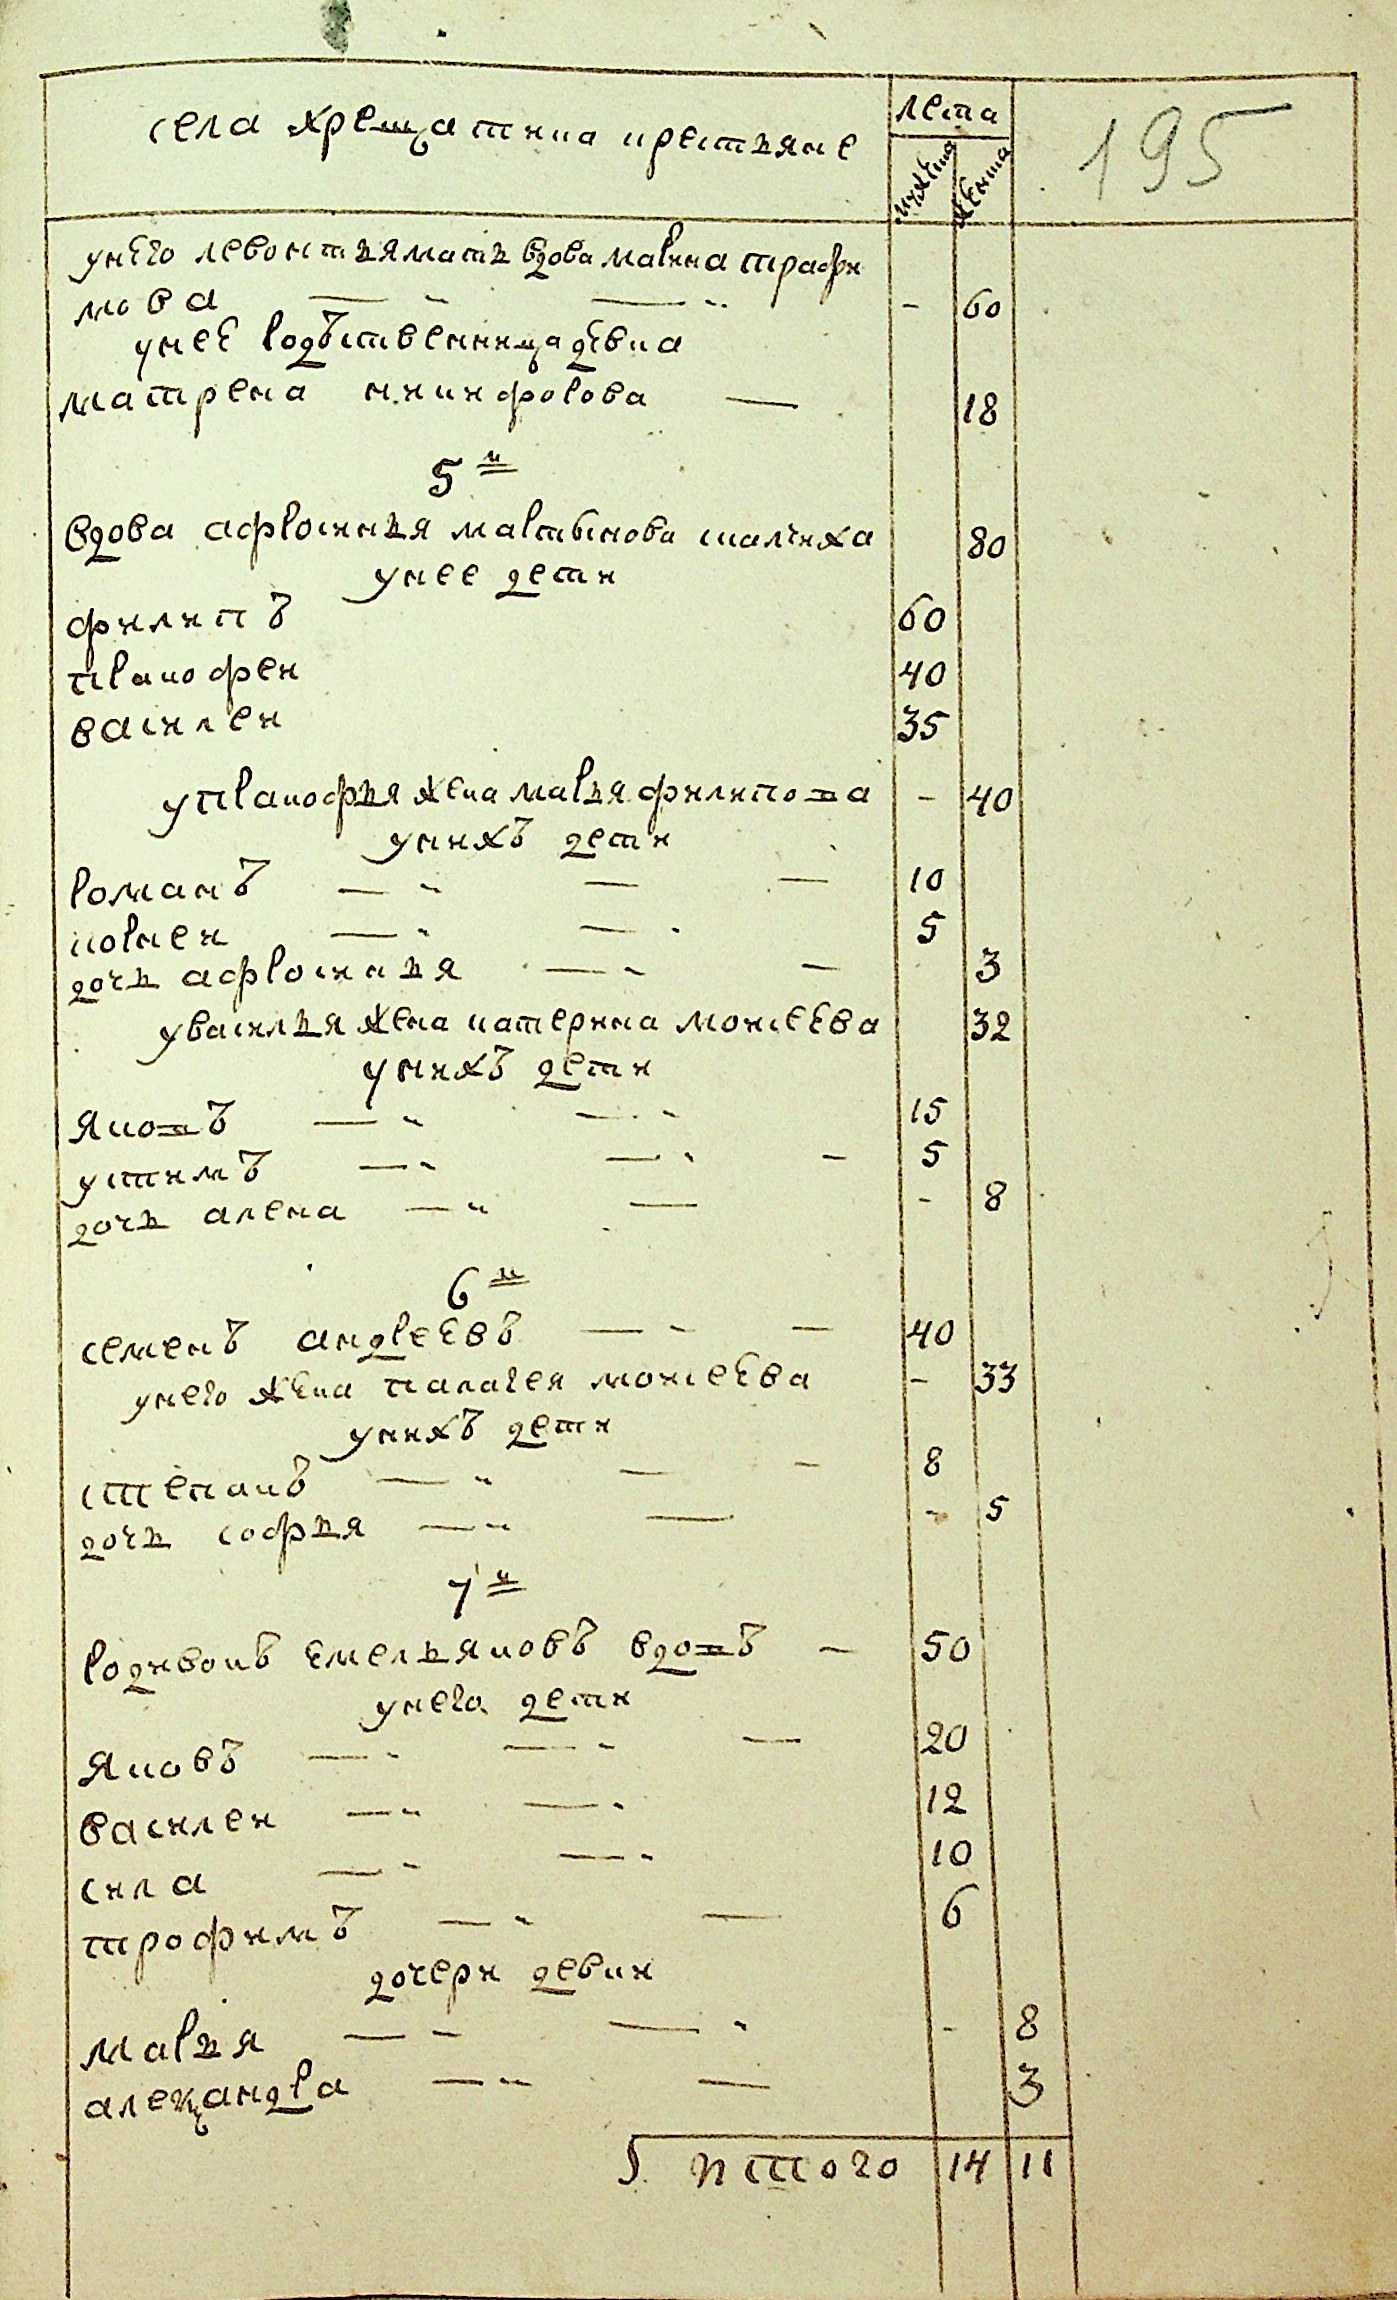 села хрещатика крестьяне
лета
мужеска
женска
195
унего левонтья мать вдова марина трафи
мова - 60
унеё родъственница дѣвка
матрена никифорова 18
5й
вдова афросинья мартынова 80
унее дети
филипъ 60
пракофеи 40
василеи 35
упракофья жена марья филипова - 40
унихъ дети
романъ 10
корнеи 5
дочь афросинья 3
увасилья жена катерина моисеѣва 32
унихъ дети
яковъ 15
устимъ 5
дочь алена - 8
6й
семенъ андреѣвъ 40
унего жена палагея моисеѣва - 33
унихъ дети
степанъ 8
дочь софья - 5
7й
родивонъ емельяновъ вдовъ 50
унего дети
яковъ 20
василеи 12
сила 10
трофимъ 6
дочери девки
марья - 8
александра 3
итого 14 11